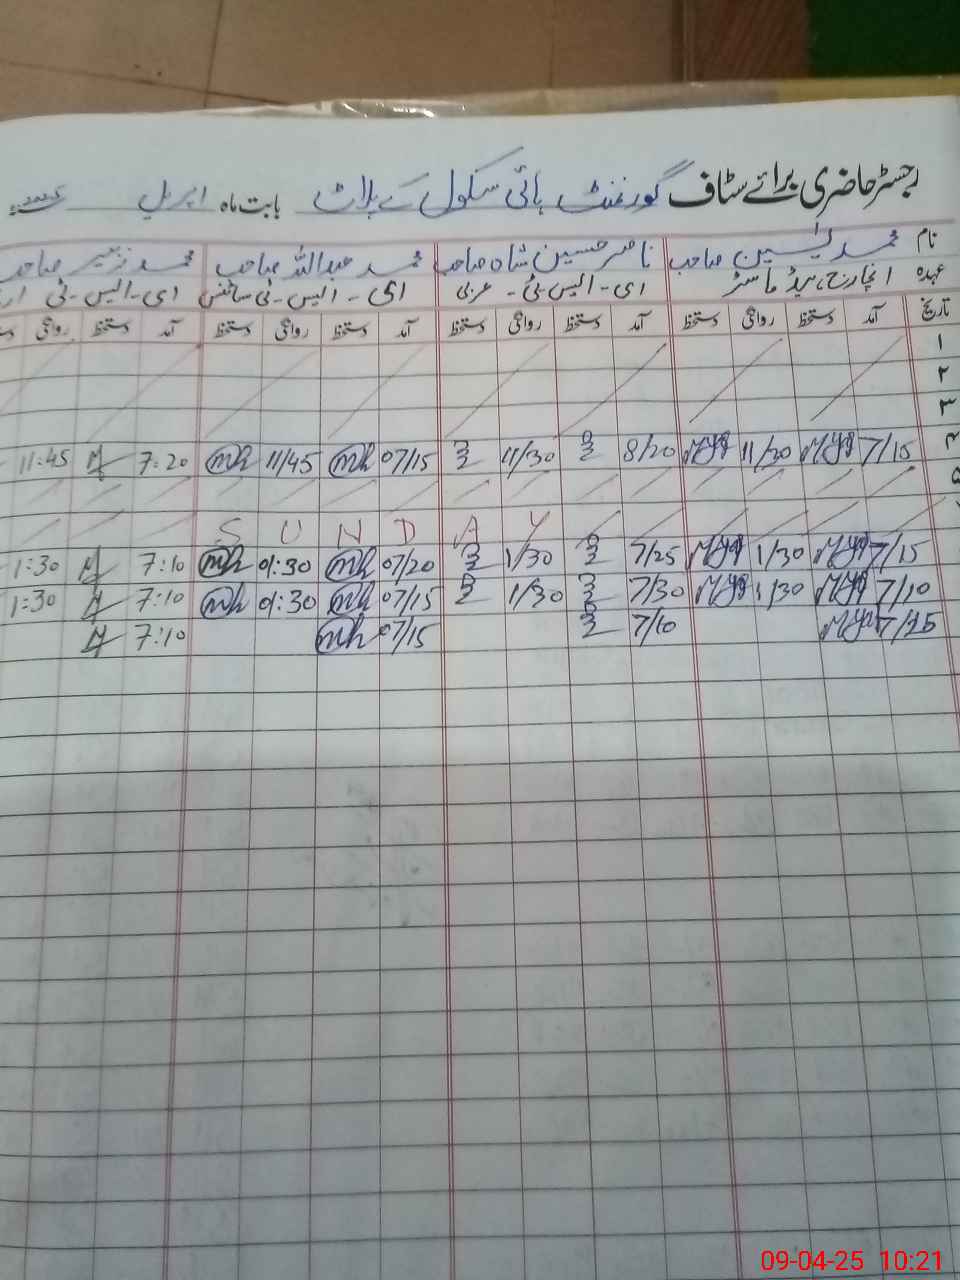 رجسٹر حاضری برائے سٹاف گورنمنٹ ہائی سکول کے پلاٹ بابت ماہ اپریل
نام محمد یٰسین صاحب ناصر حسین شاہ صاحب محمد عبداللہ صاحب محمد زبیر صاحب
عہدہ انچارج ہیڈ ماسٹر ای۔ایس۔ٹی۔ عربی ای۔ایس۔ٹی سائنس ای۔ایس۔ٹی
تاریخ آمد دستخط روانگی دستخط آمد دستخط روانگی دستخط آمد دستخط روانگی دستخط آمد دستخط روانگی
۱
۲
۳
۴ 7/15 11/20 8/20 11/30 07/15 11/45 7:20 11:45
۵
S U N D A Y
7/15 1/30 7/25 1/30 07/20 01:30 7:10 1:30
7/10 1/30 7/30 1/30 07/15 01:30 7:10 1:30
7/15 7/10 07/15 7:10
09-04-25 10:21